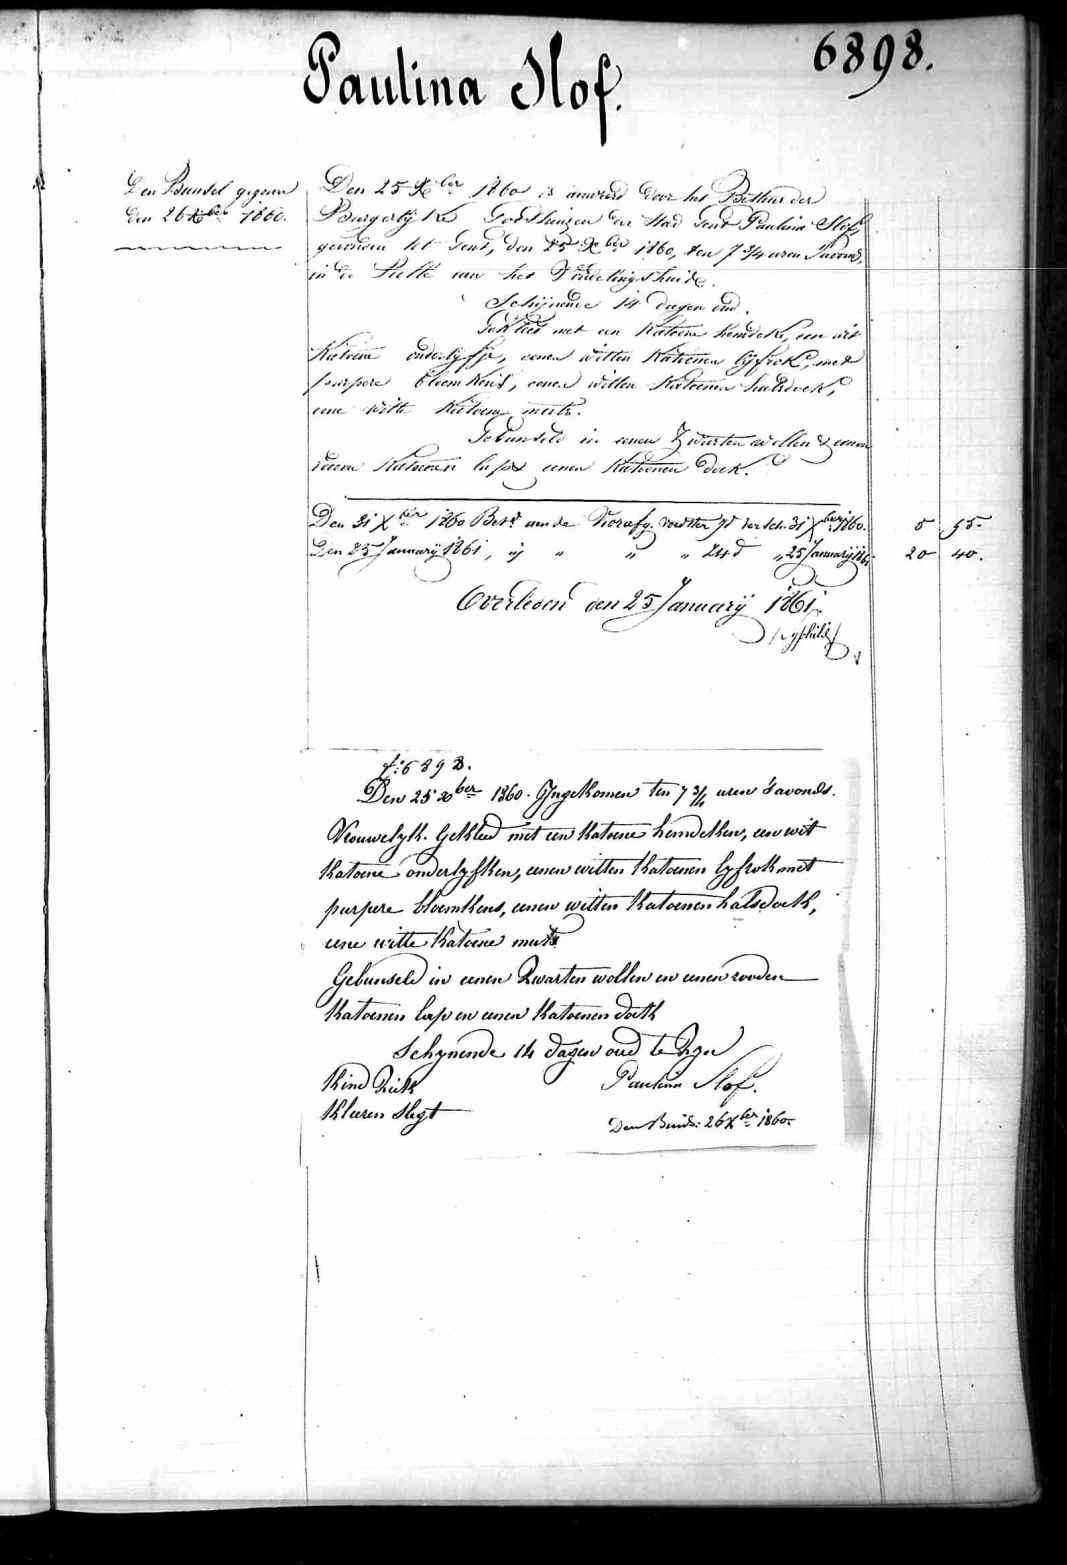 Paulina Slof.
6898.
Den Bunsel gegeven
den 26 Xber 1860.
Den 25 Xber 1860 is aenveerd door het Bestuur der
Burgerlyke Godshuizen der Stad Gend Paulina Slof,
gevonden tot Gend, den 25 Xber 1860, ten 7 3/4 uren 's avonds,
in de van het Vondelingshuis.
Schijnende 14 dagen oud.
Gekleed met een katoene hemdeke, een wit
katoene onderlyfje, eenen witten katoenen lyfrok, met
purpere bloemkens, eenen witten katoenen halsdoek,
eene witte katoene muts.
Gebunseld in eenen zwarten wollen & eenen
katoenen lap & eenen katoenen doek.
Den 31 Xber 1860 Betd aende Voorafg. voedster 7d versch. 31 Xber 1860. 5 95
Den 25 January 1861, " " " 24 d " 25 January 1861. 20 40.
Overleden den 25 January 1861.
/syphilis/
f: 6898.
Den 25 Xber 1860. Ingekomen ten 7 3/4 uren 's avonds.
Vrouwelyk. Gekleed met een katoene hemdeken, een wit
katoene onderlyfken, eenen witten katoenen lyfrok met
purpere bloemkens, eenen witten katoenen halsdoek,
eene witte katoene muts
Gebunseld in eenen Zwarten wollen en eenen rooden
katoenen lap en eenen katoenen doek
Schynende 14 dagen oud te Zyn
Kind Ziek
Paulina Slof.
Kleeren slegt
Den 26 Xber 1860.